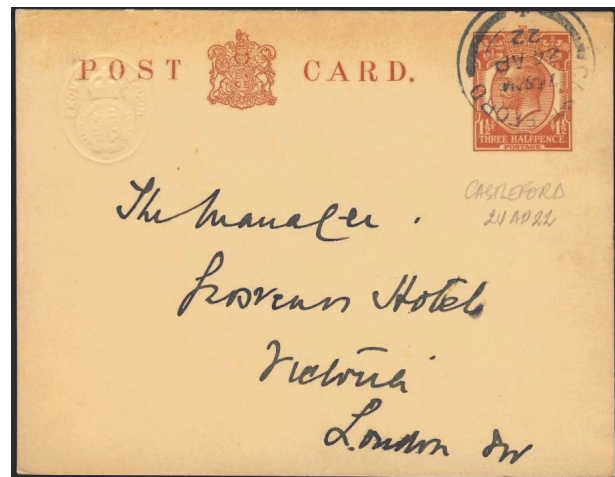 POST CARD.
1½ 1½
THREE HALFPENCE
POSTAGE
CASTLEFORD
24 AP 22
The Manager.
Grosvenor Hotel
Victoria
London SW